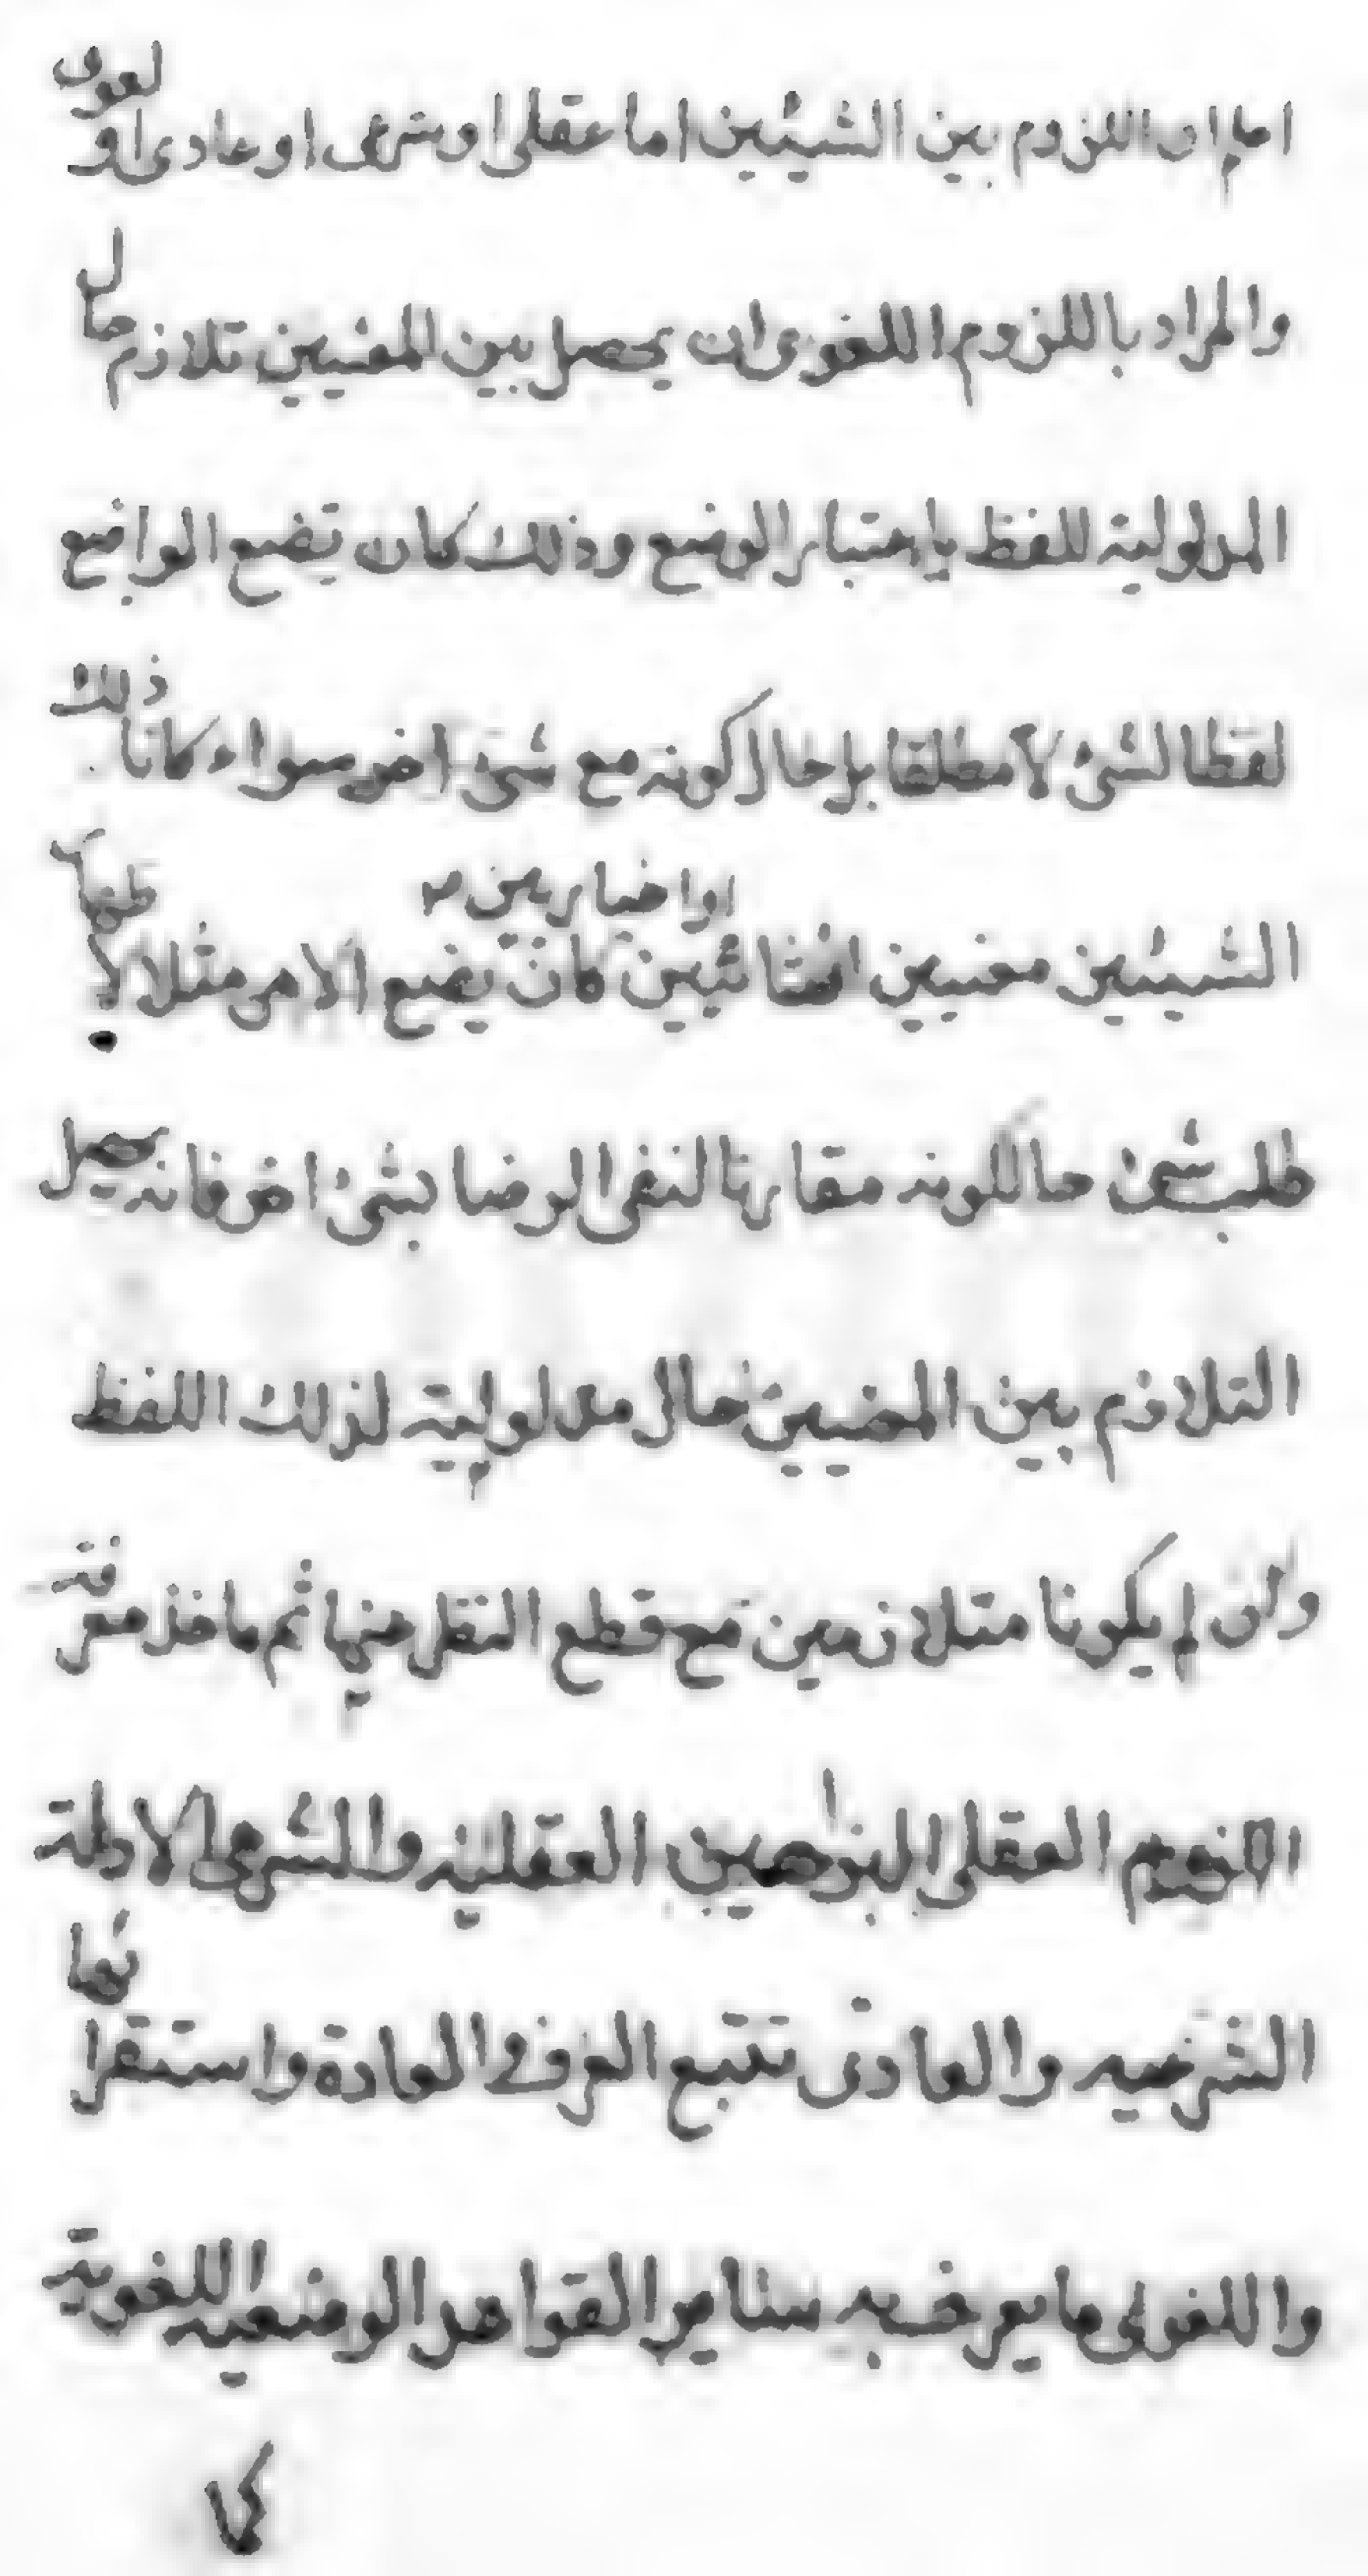 اعلم ان اللزوم بين الشيئين اما عقلى او شرعى او عادى او لغوى
والمراد باللزوم اللغوى ان يحصل بين المعنيين تلازم حال
المدلولية للفظ باعتبار الوضع وذلك كان يضع الواضع
لفظا لشئ لا مطلقا بل حال كونه مع شئ اخر سواء كانا ذلك
الشيئين معنيين انشائيين كان يضع الامر مثلا
او اخباريين
طلب شئ حالكونه مقارنا لنفى الرضا بشئ اخر فانه يحصل
التلازم بين المعنيين حال مدلولية لذلك اللفظ
وان لم يكونا متلازمين مع قطع النظر عنها ثم ماخذ معرفة
اللزوم العقلى البراهين العقلية والشرعى الادلة
الشرعيه والعادى تتبع العرف والعادة واستقرا
واللغوى ما يعرف به سناير القواعد الوضعيه اللغوية
كما